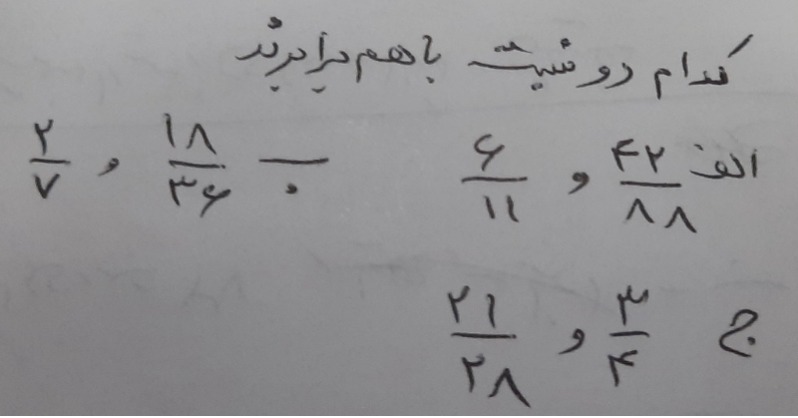 کدام دو نسبت باهم برابرند
الف ۴۲/۸۸ و ۶/۱۱ ب ۱۸/۳۶ و ۲/۷
ج ۳/۴ و ۲۱/۲۸